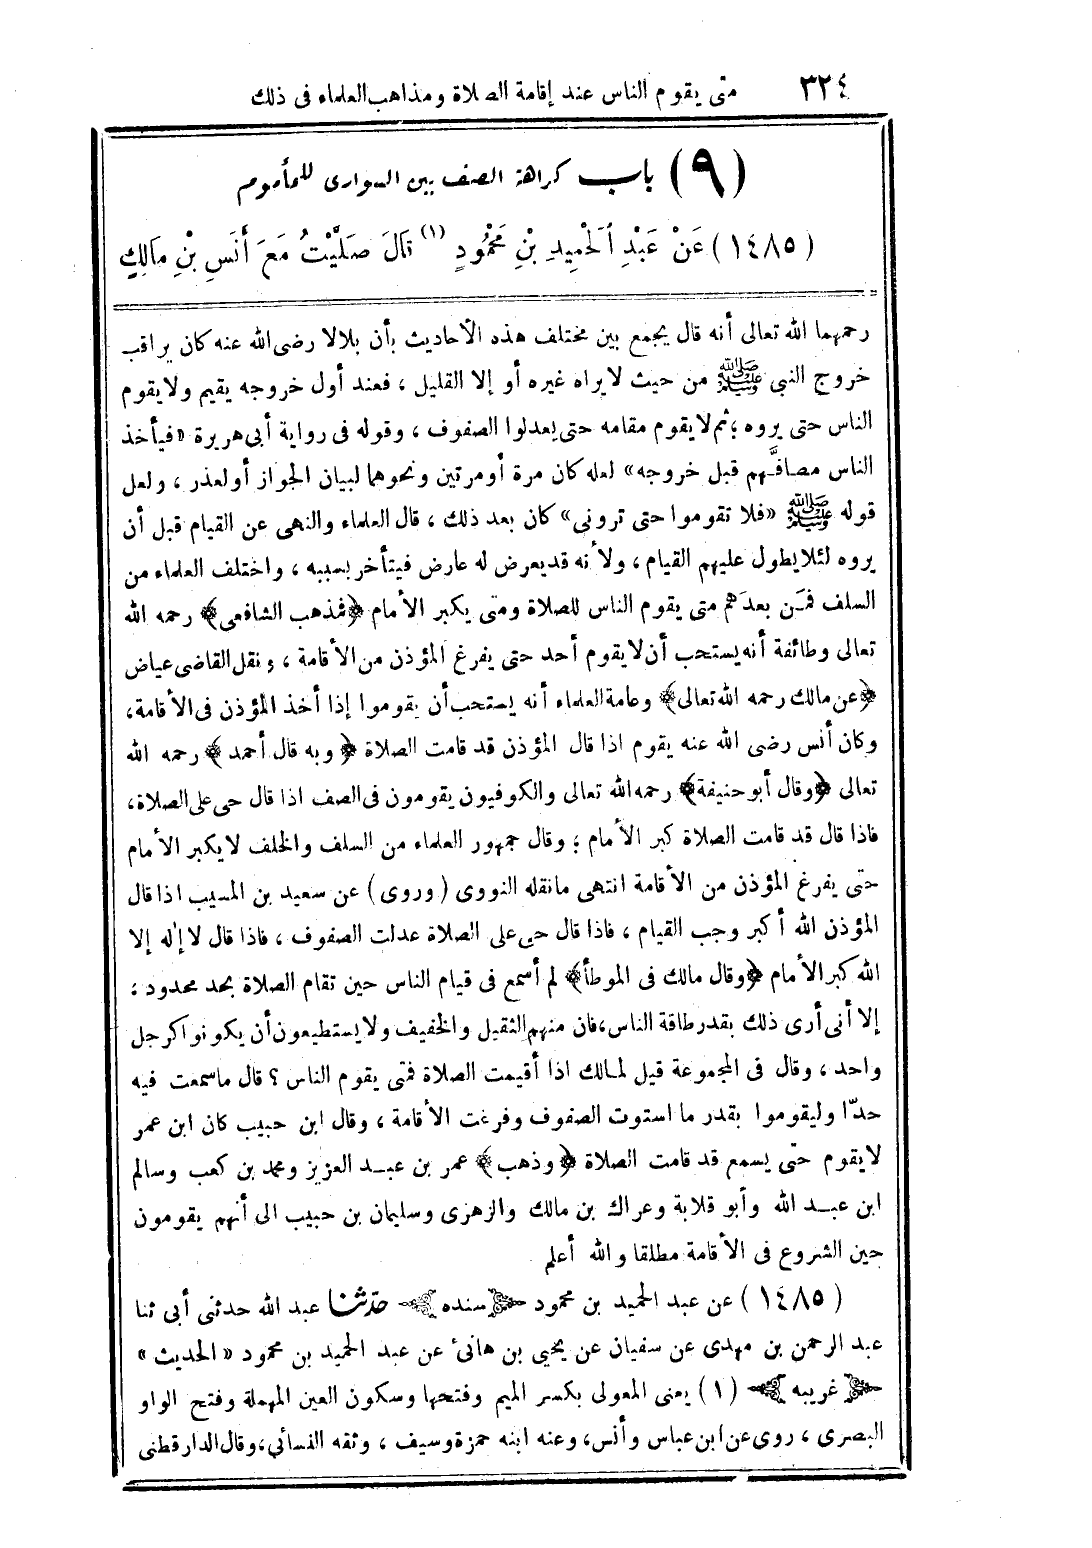 ٣٢٤ متى يقوم الناس عند إقامة الصلاة ومذاهب العلماء فى ذلك
(٩) باب كراهة الصف بين السوارى للمأموم
(١٤٨٥) عَنْ عَبْدِ ٱلْحَمِيدِ بْنِ مَحْمُودٍ (١) قَالَ صَلَّيْتُ مَعَ أَنَسِ بْنِ مَالِكٍ
رحمهما الله تعالى أنه قال يجمع بين مختلف هذه الأحاديث بأن بلالا رضى الله عنه كان يراقب
خروج النبى ﷺ من حيث لايراه غيره أو إلا القليل ، فعند أول خروجه يقيم ولايقوم
الناس حتى يروه ؛ ثم لايقوم مقامه حتى يعدلوا الصفوف ، وقوله فى رواية أبى هريرة «فيأخذ
الناس مصافَّهم قبل خروجه» لعله كان مرة أومرتين ونحوهما لبيان الجواز أولعذر ، ولعل
قوله ﷺ «فلا تقوموا حتى ترونى» كان بعد ذلك ، قال العلماء والنهى عن القيام قبل أن
يروه لئلا يطول عليهم القيام ، ولأنه قديعرض له عارض فيتأخر بسببه ، واختلف العلماء من
السلف فمَن بعدَهم متى يقوم الناس للصلاة ومتى يكبر الأمام ﴿فمذهب الشافعى﴾ رحمه الله
تعالى وطائفة أنه يستحب أن لايقوم أحد حتى يفرغ المؤذن من الأقامة ، ونقل القاضى عياض
﴿عن مالك رحمه الله تعالى﴾ وعامة العلماء أنه يستحب أن يقوموا إذا أخذ المؤذن فى الأقامة،
وكان أنس رضى الله عنه يقوم اذا قال المؤذن قد قامت الصلاة ﴿وبه قال أحمد﴾ رحمه الله
تعالى ﴿وقال أبو حنيفة﴾ رحمه الله تعالى والكوفيون يقومون فى الصف اذا قال حى على الصلاة،
فاذا قال قد قامت الصلاة كبر الأمام ؛ وقال جمهور العلماء من السلف والخلف لايكبر الأمام
حتى يفرغ المؤذن من الأقامة انتهى مانقله النووى (وروى) عن سعيد بن المسيب اذا قال
المؤذن الله أكبر وجب القيام ، فاذا قال حى على الصلاة عدلت الصفوف ، فاذا قال لا إله إلا
الله كبر الأمام ﴿وقال مالك فى الموطأ﴾ لم أسمع فى قيام الناس حين تقام الصلاة بحد محدود ؛
إلا أنى أرى ذلك بقدر طاقة الناس، فان منهم الثقيل والخفيف ولايستطيعون أن يكونوا كرجل
واحد ، وقال فى المجموعة قيل لمالك اذا أقيمت الصلاة فمتى يقوم الناس ؟ قال ماسمعت فيه
حدّا وليقوموا بقدر ما استوت الصفوف وفرغت الأقامة ، وقال ابن حبيب كان ابن عمر
لايقوم حتى يسمع قد قامت الصلاة ﴿وذهب﴾ عمر بن عبد العزيز ومحمد بن كعب وسالم
ابن عبد الله وأبو قلابة وعراك بن مالك والزهرى وسليمان بن حبيب الى أنهم يقومون
حين الشروع فى الأقامة مطلقا والله أعلم
(١٤٨٥) عن عبد الحميد بن محمود ﴿سنده﴾ حدثنا عبد الله حدثنى أبى ثنا
عبد الرحمن بن مهدى عن سفيان عن يحيى بن هانئ عن عبد الحميد بن محمود «الحديث»
﴿غريبه﴾ (١) يعنى المعولى بكسر الميم وفتحها وسكون العين المهملة وفتح الواو
البصرى ، روى عن ابن عباس وأنس، وعنه ابنه حمزة وسيف ، وثقه النسائى، وقال الدارقطنى